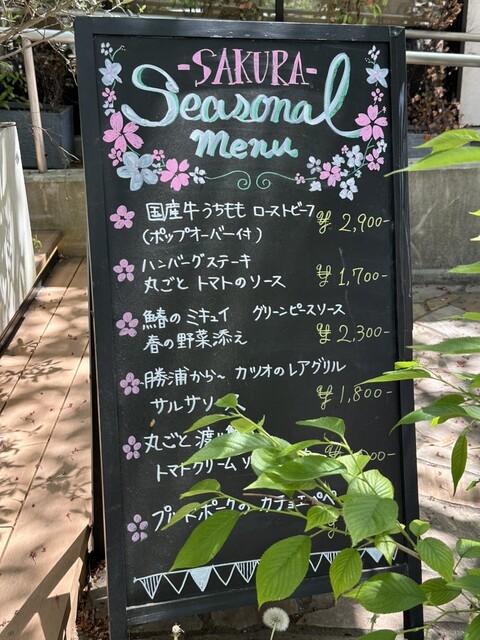 -SAKURA-
Seasonal
menu
国産牛うちもも ローストビーフ
(ポップオーバー付) ¥2,900-
ハンバーグステーキ
丸ごと トマトのソース ¥1,700-
鰆のミキュイ グリーンピースソース
春の野菜添え ¥2,300-
勝浦から〜 カツオのレアグリル
サルサソース ¥1,800-
丸ごと渡り
トマトクリーム
カチョエペペ